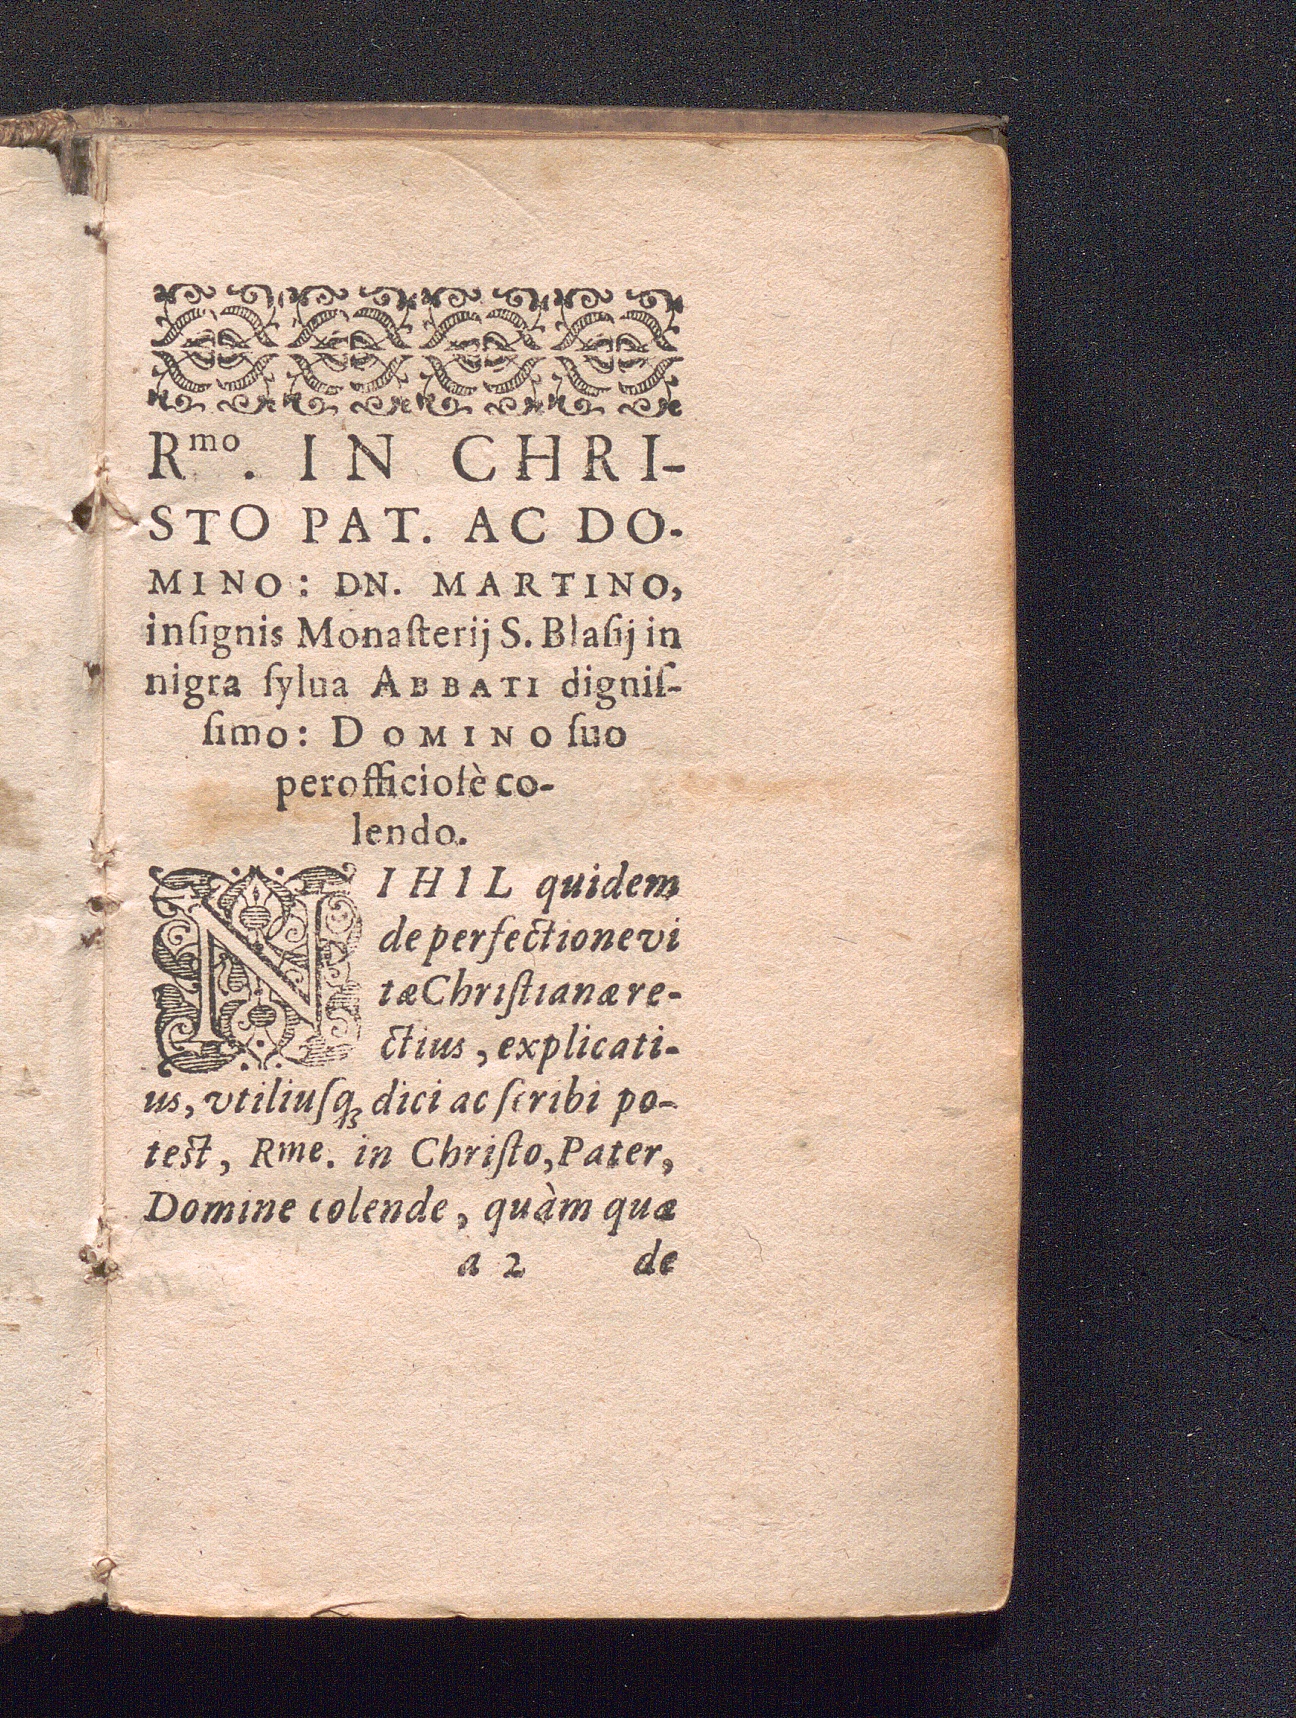 Rmo. IN CHRI-
STO PAT. AC DO-
MINO: DN. MARTINO,
inſignis Monaſterij S. Blaſij in
nigra ſylua ABBATI digniſ-
ſimo: DOMINO ſuo
perofficioſè co-
lendo.
NIHIL quidem
de perfectione vi
tæ Chriſtianæ re-
ctius, explicati-
us, vtiliuſq́; dici ac ſcribi po-
test, Rme. in Chriſto, Pater,
Domine colende, quàm quæ
a 2 de